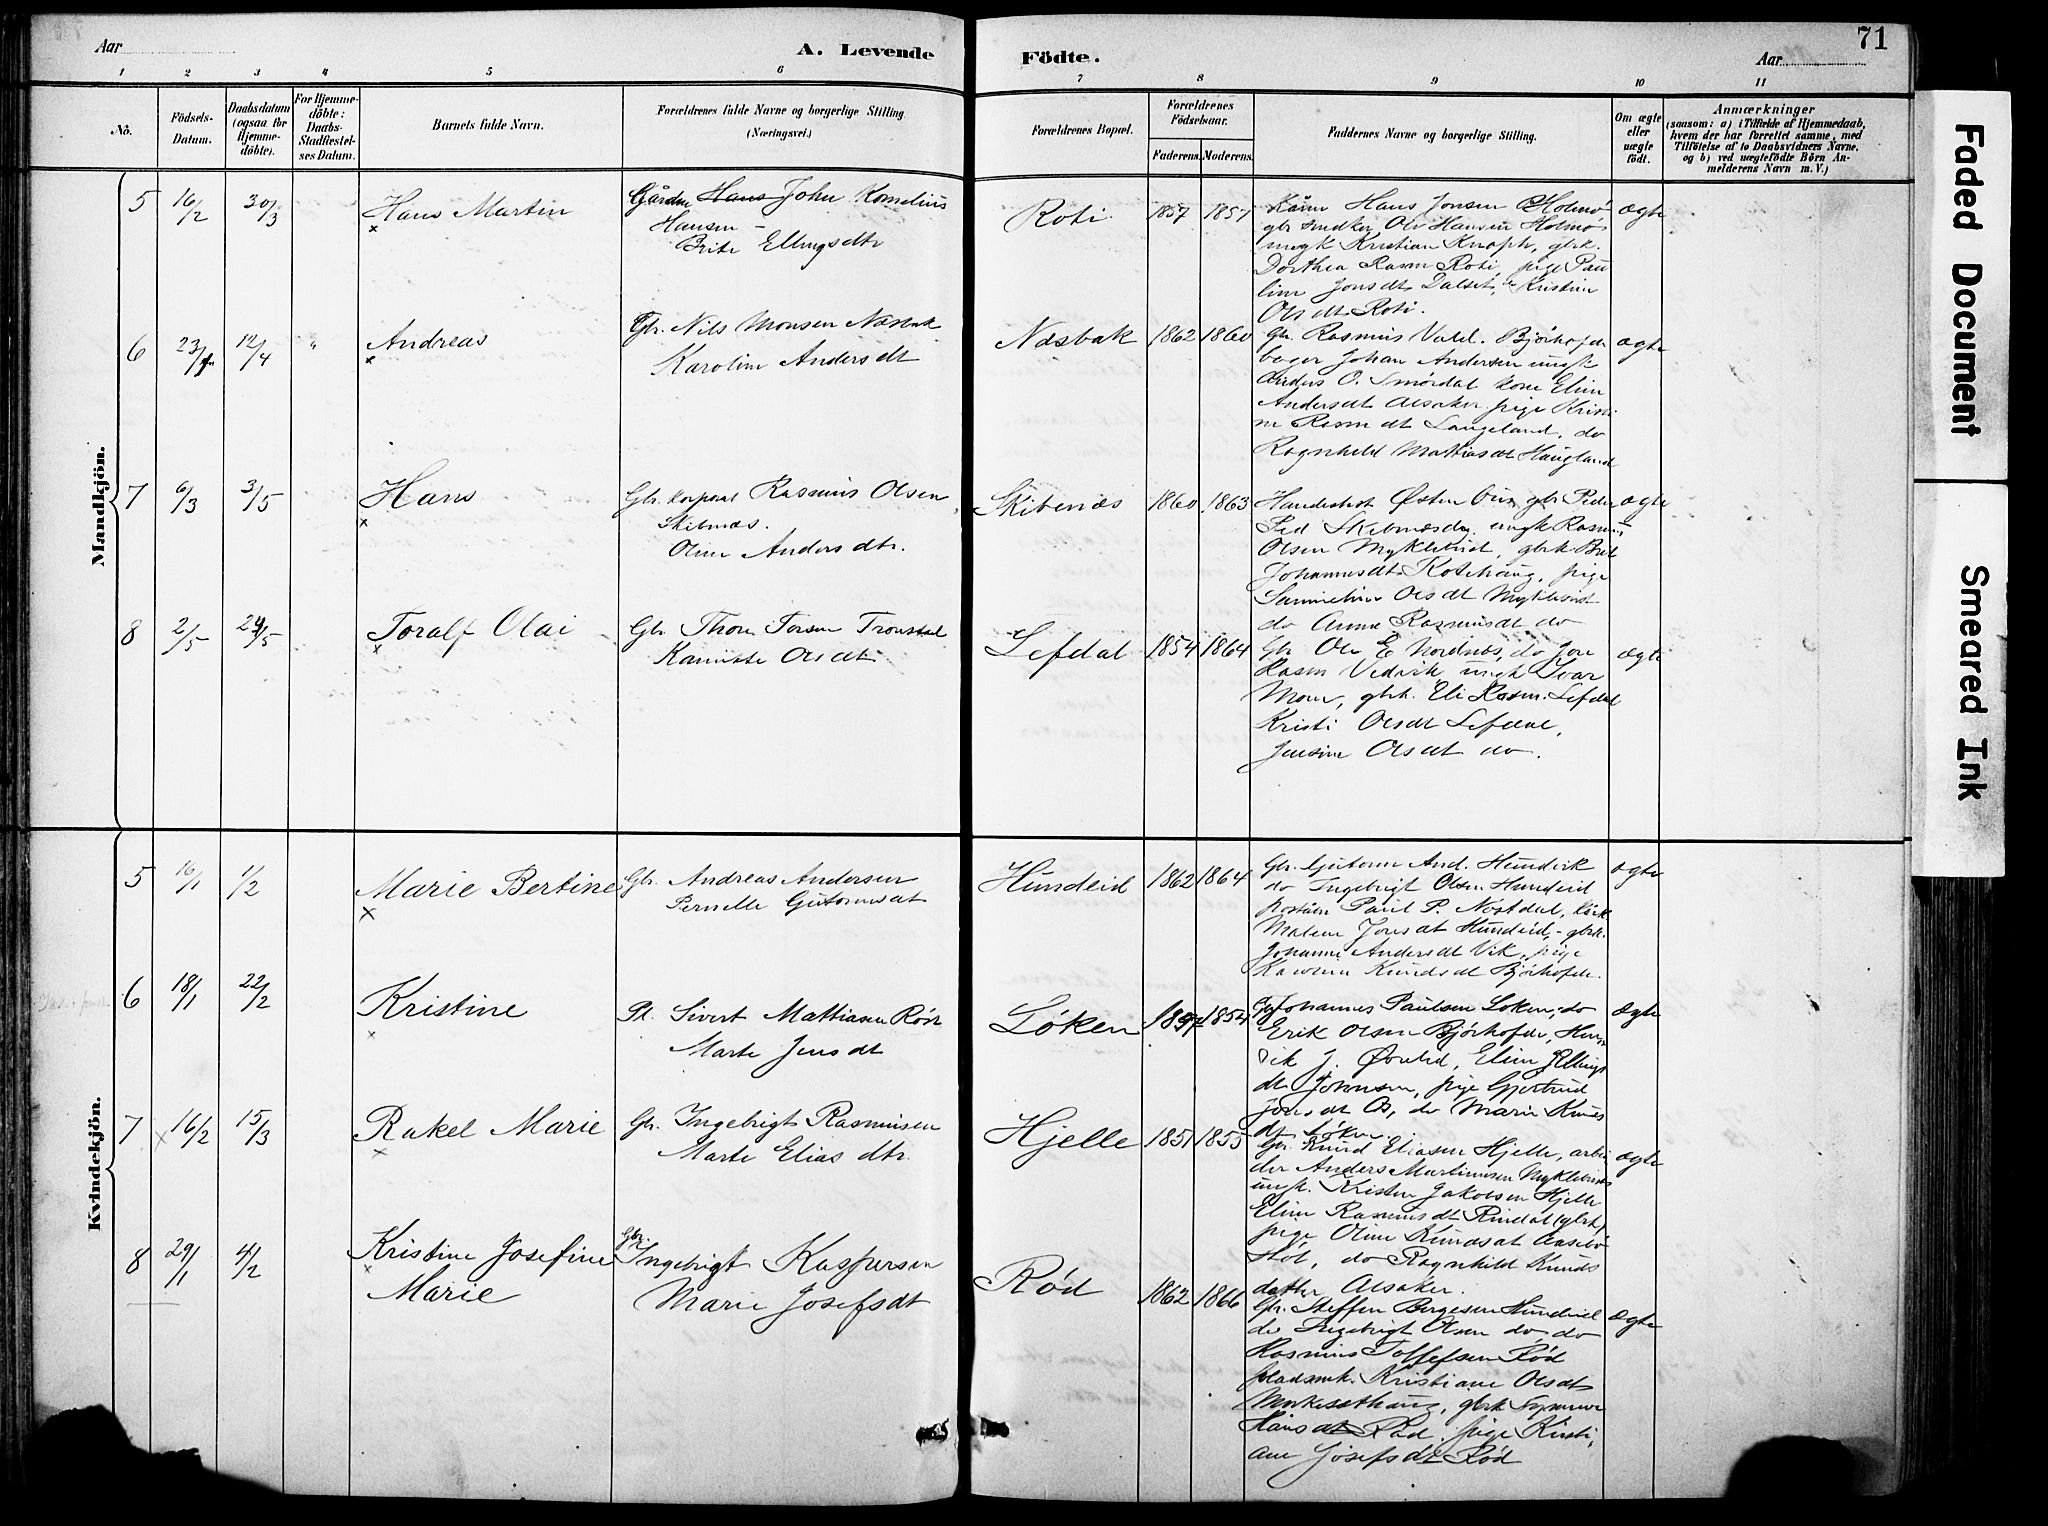 Aar
A. Levende
Födte.
Aar
71
1 2 3 4 5 6 7 8 9 10 11
No.
Födsels-
Datum.
Daabsdatum
(ogsaa for
Hjemme-
döbte).
For Hjemme-
döbte:
Daabs-
Stadfæstel-
ses Datum.
Barnets fulde Navn.
Forældrenes fulde Navne og borgerlige Stilling.
(Næringsvei.)
Forældrenes Bopæl.
Forældrenes
Födselsaar.
Faderens. Moderens.
Faddernes Navne og borgerlige Stilling.
Om ægte
eller
uægte
födt.
Anmærkninger
(saasom: a) i Tilfælde af Hjemmedaab,
hvem der har forrettet samme, med
Tilföielse af to Daabsvidners Navne.
og b) ved uægtefödte Börn An-
melderens Navn m. V.)
Mandkjön.
5 16/2 30/3 Hans Martin
Gårdm Hans John Kornelius
Hansen
Brite Ellingsdtr
Roti 1857 1857
Hans Jonsen Holmö
Ole Hansen Holmö
Kristian Knaph, gbrk.
Dorthea Rasm Roti, pige Pau
line Jonsdt Dalset, Kristine
Olsdt Roti.
ægte
6 12/4 " Andreas
Gbr. Nils Monsen Næsbak
Karoline Andersdt
Næsbak 1862 1860
Gbr. Rasmus Bjórhofde
Johan Andersen ungk
Anders O. Smørdal kone Eline
Andersdt Alsaker pige Kristi
ne Rasmdt Langeland, do
Ragnhild Mattiasdt Haugland
ægte
7 6/3 3/5 Hans
Gbr. korporal Rasmus Olsen
Skibenæs.
Oline Andersdtr.
Skibenæs 1860 1863
Østen gbr Peder
Ped Skibenæs ungk Rasmus
Olsen Myklebust, gbrk Brit
Johannesdt Rotehaug, pige
Olsdt Myklebust
do Anne Rasmusdt do
ægte
8 2/5 Toralf Olai
Gbr Thore
Olsdt
Lefdal 1854 1864
Gbr Ole E Nordnes, do Jon
Rasm Vedvik ungk Ivar
Mone, gbrk. Eli Rasm. Lefdal
Kristi Olsdt Lefdal,
Jensine Olsdt do.
ægte
Kvindekjön.
5 16/1 1/2 Marie Bertine
Gbr. Andreas Andersen
Pernille Gutormsdt
Hundeid 1862 1864
Gbr. Gutorm And. Hundvik
do Ingebrigt Olsen Hundeid
Paul P. Nøstdal,
Malene Jonsdt Hundeid, gbrk.
Johanne Andersdt Vik, pige
Knudsdt Bjórhofde.
ægte
6 18/1 22/2 Kristine
Pl. Sivert Mattiasen
Marte Jensdt
Løken 1854
Johannes Paulsen Løken, do
Erik Olsen Bjørhofde, Hen
rik J. Ørelid, Eline Ellings
dt Johnsen, pige Gjertrud
Jonsdt Os, do Marie Knuds
dt Løken
ægte
7 16/2 15/3 Rakel Marie
Gbr. Ingebrigt Rasmussen
Marte Eliasdtr.
Hjelle 1851 1855
Gbr. Knud Eliasen Hjelle, arbei
der Anders Martinusen Myklebust
ungk. Kristen Jakobsen Hjelle
Eline Rasmusdt Rindal (gbrk)
pige Oline Knudsdt Aasebø
støl, do Ragnhild Knuds
datter Alsaker.
ægte
8 29/1 4/2 Kristine Josefine
Marie
Gbr.
Ingebrigt Kaspersen
Marie Josefsdt
Rød 1862 1866
Gbr. Steffen Børgesen Hundeid
do Ingebrigt Olsen do, do
Rasmus Tollefsen Rød
pladsmk. Kristiane Olsdt
Morkesethaug, gbrk Synneve
Hansdt Rød, pige Kristi
ane Josefsdt Rød
ægte
Faded Document
Smeared Ink